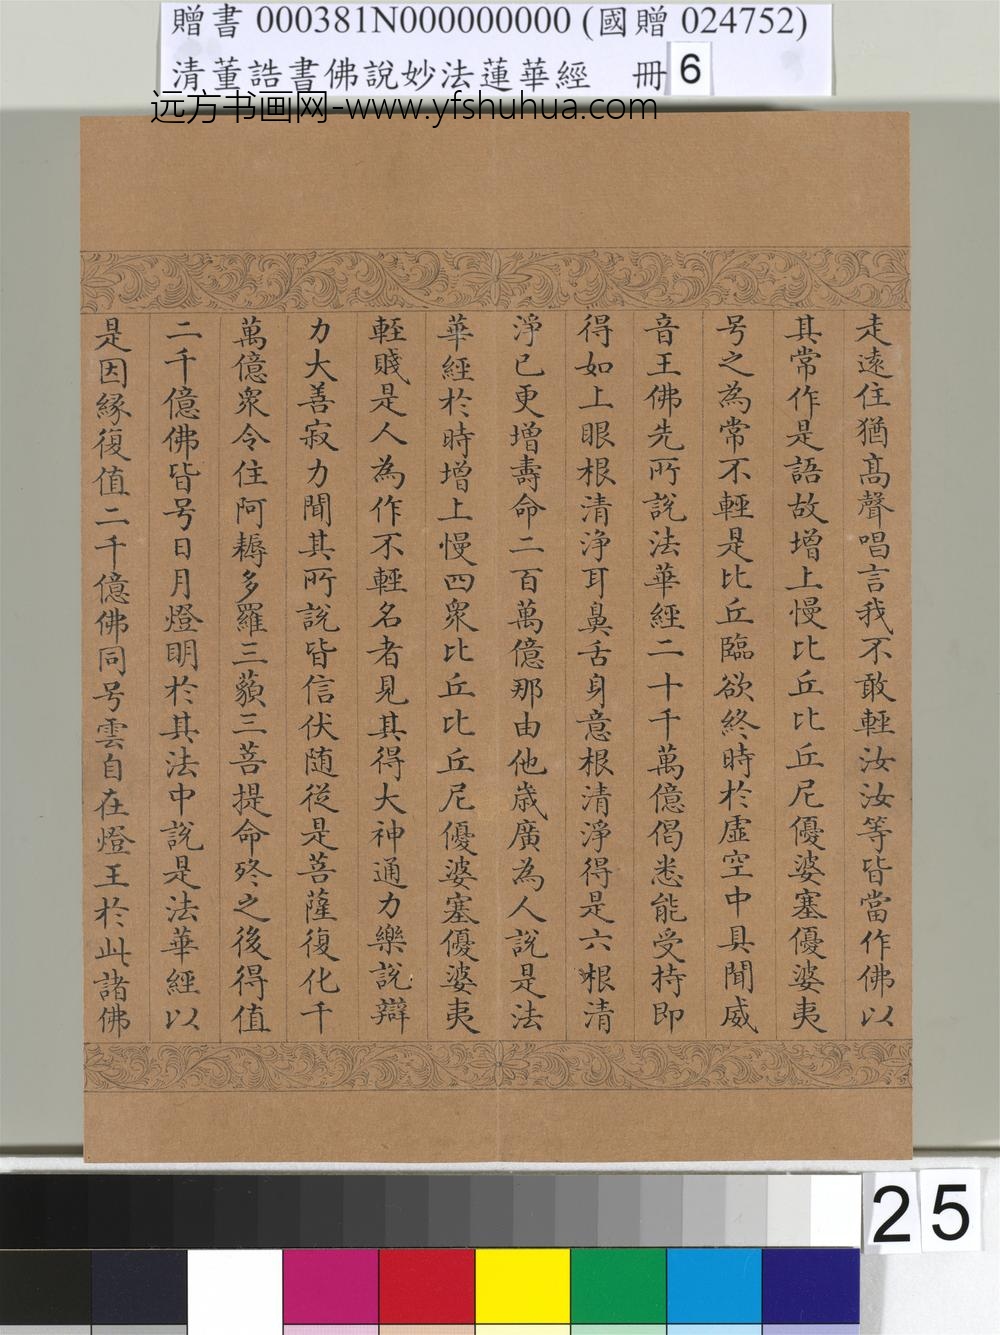 贈書 000381N000000000 (國贈 024752)
清董誥書佛說妙法蓮華經 冊6
远方书画网-www.yfshuhua.com
走逺住猶髙聲唱言我不敢輕汝汝等皆當作佛以
其常作是語故增上慢比丘比丘尼優婆塞優婆夷
号之為常不輕是比丘臨欲終時於虛空中具聞威
音王佛先所說法華經二十千萬億偈悉能受持即
得如上眼根清淨耳鼻舌身意根清淨得是六根清
淨已更增壽命二百萬億那由他歲廣為人說是法
華經於時增上慢四衆比丘比丘尼優婆塞優婆夷
輕賤是人為作不輕名者見其得大神通力樂說辯
力大善寂力聞其所說皆信伏随從是菩薩復化千
萬億衆令住阿耨多羅三藐三菩提命終之後得值
二千億佛皆号日月燈明於其法中說是法華經以
是因緣復值二千億佛同号雲自在燈王於此諸佛
25